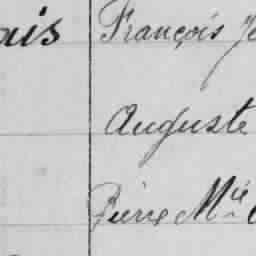 ais François
Auguste
Pierre Mie